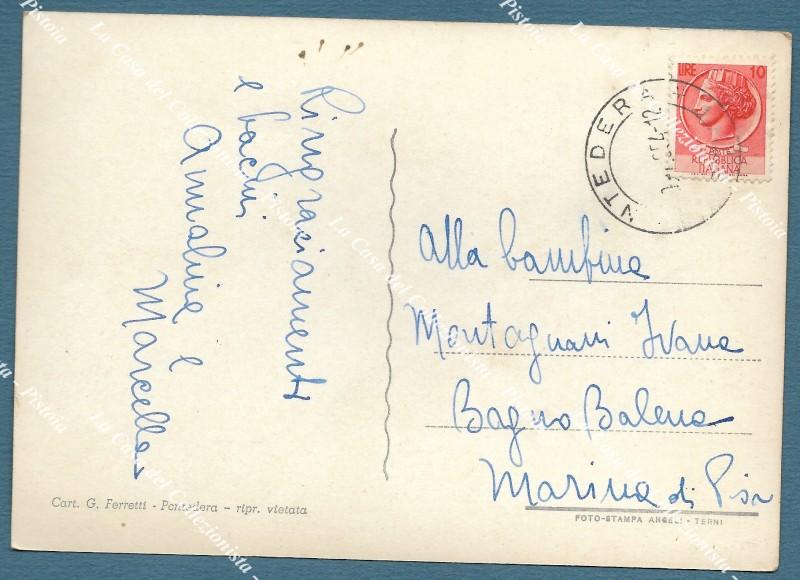 Ringraziamenti
e bacini
Annalisa e
Marcella
LIRE 10
POSTE
REPUBBLICA
ITALIANA
NTEDERA
Alla bambina
Montagnani Ivana
Bagno Balena
Marina di Pisa
Cart. G. Ferretti - Pontedera - ripr. vietata
FOTO-STAMPA ANGELI - TERNI
La Casa del Collezionista - Pistoia